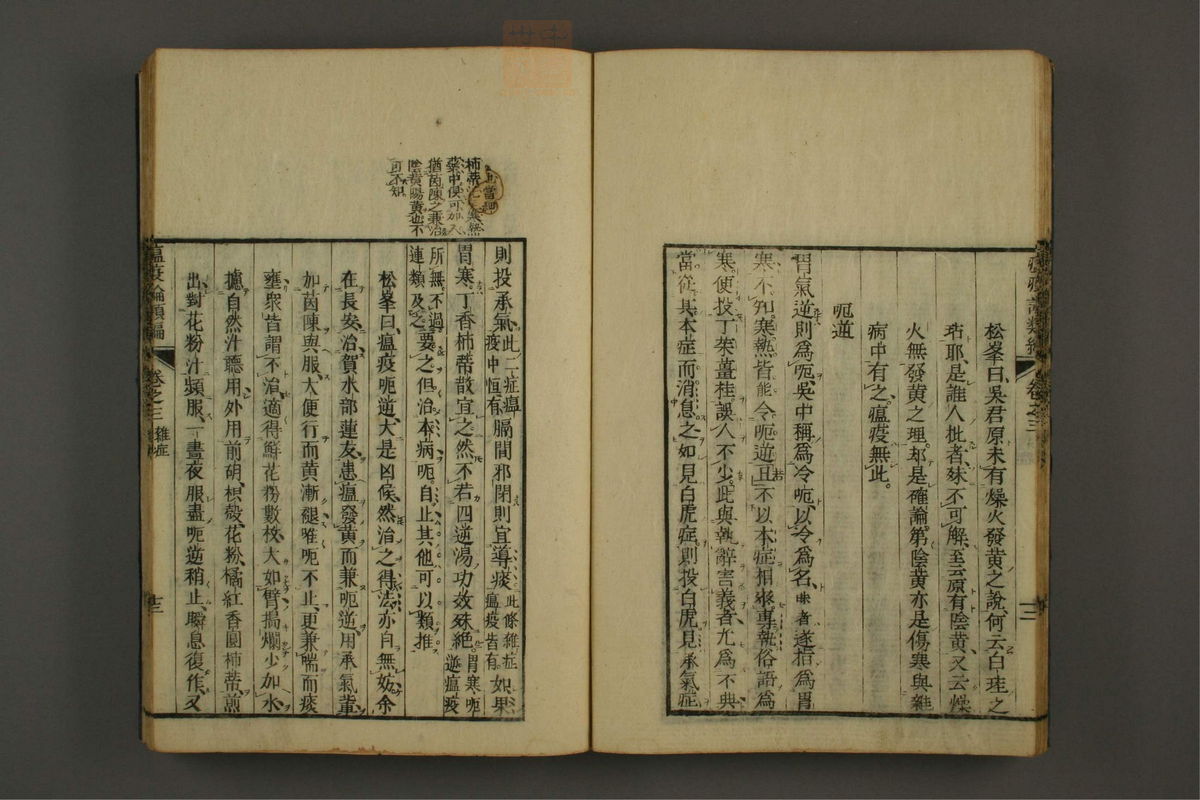 松峯曰吳君原未有燥火發黃之說何云白珪之
玷耶是誰人批者殊不可解至云原有陰黃又云燥
火無發黃之理却是確論第陰黃亦是傷寒與雜
病中有之瘟疫無此。
呃逆
胃氣逆則爲呃吳中稱爲冷呃以冷爲名遂指爲胃
寒不知寒熱皆能令呃逆且不以本症相參專執俗語爲
寒使投丁茱薑桂誤人不少此與執辭害義者尤爲不典
當從其本症而消息之如見白虎症則投白虎見承氣症
則投承氣此二症瘟疫中恒有膈間邪閉則宜導痰此條雜症瘟疫皆有如果
胃寒丁香柿蒂散宜之然不若四逆湯功效殊絕胃寒呃逆瘟疫
所無不過連類及之要之但治本病呃自止其他可以類推
松峯曰瘟疫呃逆大是凶候然治之得法亦自無妨余
在長安治賀水部蓮友患瘟發黃而兼呃逆用承氣輩
加茵陳與服大便行而黃漸褪唯呃不止更兼喘而痰
壅衆皆謂不治適得鮮花粉數枚大如臂搗爛少加水
攄自然汁聽用外用前胡枳殼花粉橘紅香圓柿蒂煎
出對花粉汁頻服一晝夜服盡呃逆稍止瞬息復作又
柿蒂
藥中便可加入
猶茵陳之兼治
陰黃陽黃也不
可不知
瘟疫論類編
卷之三
雜症